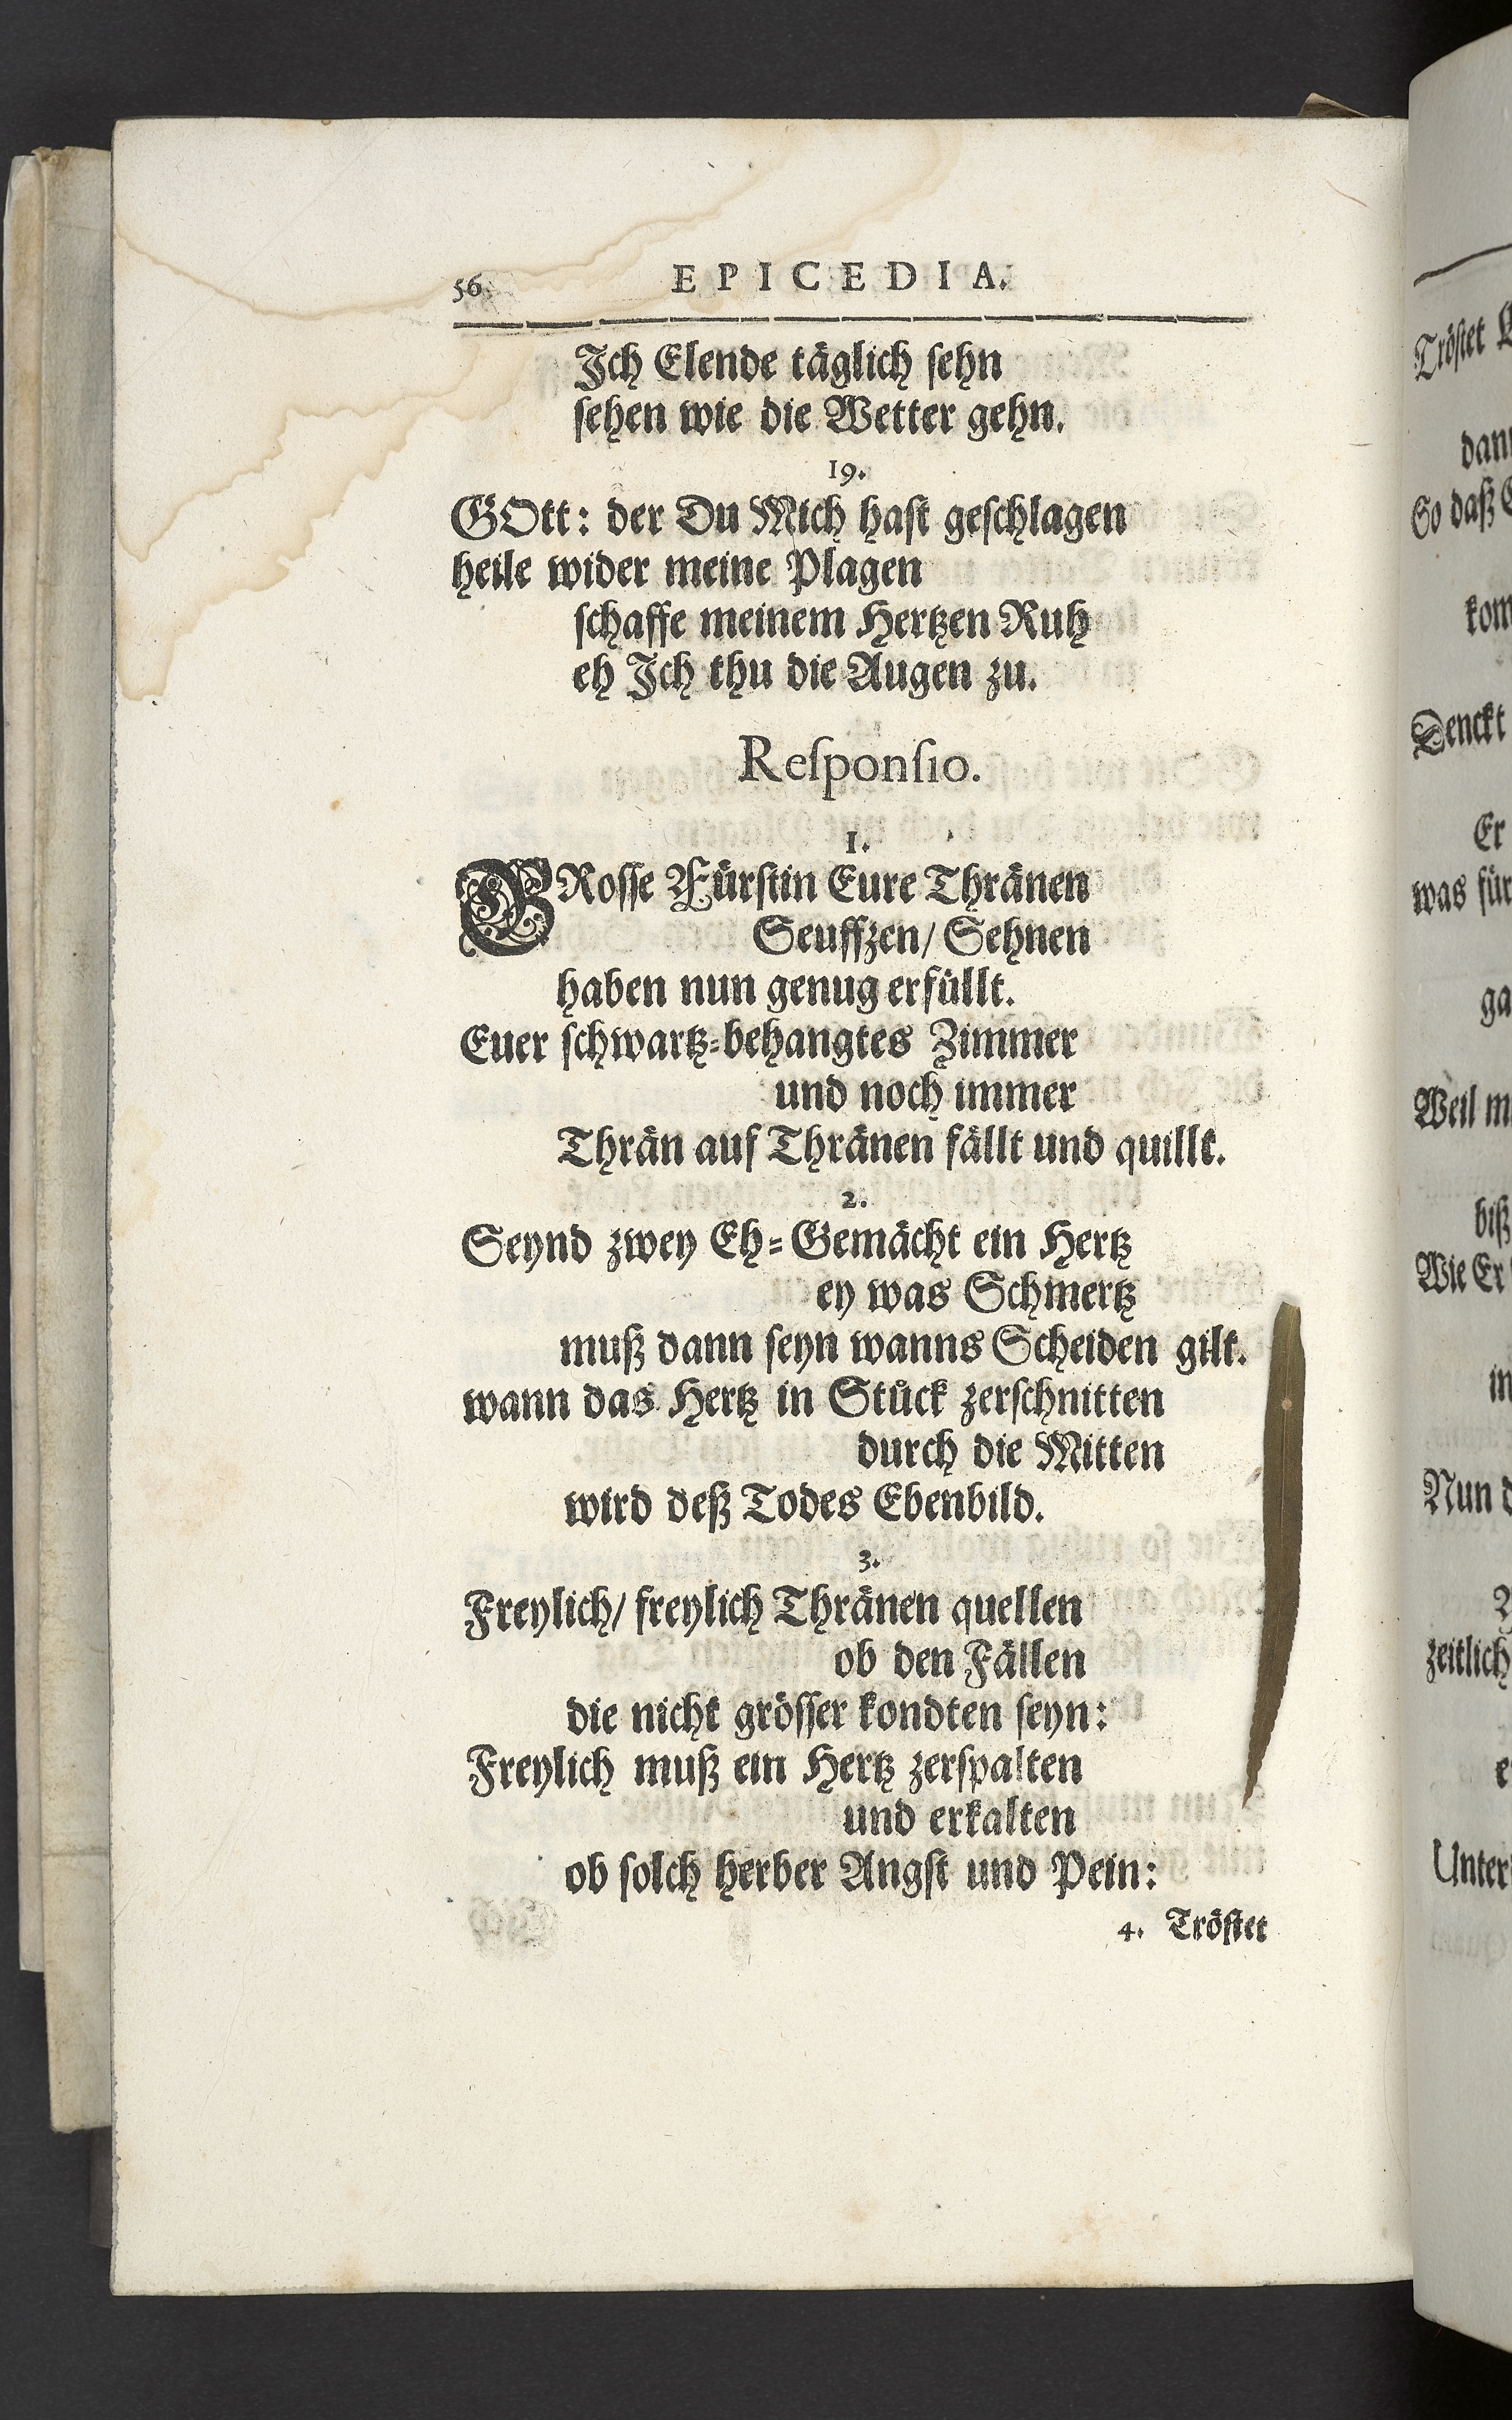 56 EPICEDIA.
Ich Elende täglich ſehn
ſehen wie die Wetter gehn.
19.
GOtt: der Du Mich haſt geſchlagen
heile wider meine Plagen
ſchaffe meinem Hertzen Ruh
eh Ich thu die Augen zu.
Reſponſio.
1.
GRoſſe Fürſtin Eure Thränen
Seuffzen/ Sehnen
haben nun genug erfüllt.
Euer ſchwartz-behangtes Zimmer
und noch immer
Thrän auf Thränen fällt und quillt.
2.
Seynd zwey Eh-Gemächt ein Hertz
ey was Schmertz
muß dann ſeyn wanns Scheiden gilt.
wann das Hertz in Stück zerſchnitten
durch die Mitten
wird deß Todes Ebenbild.
3.
Freylich/ freylich Thränen quellen
ob den Fällen
die nicht gröſſer kondten ſeyn:
Freylich muß ein Hertz zerſpalten
und erkalten
ob ſolch herber Angſt und Pein:
4. Tröſtet
Tröſtet
So daß
Denckt
Er
was für
Weil
biß
Wie Er
Nun
zeitlich